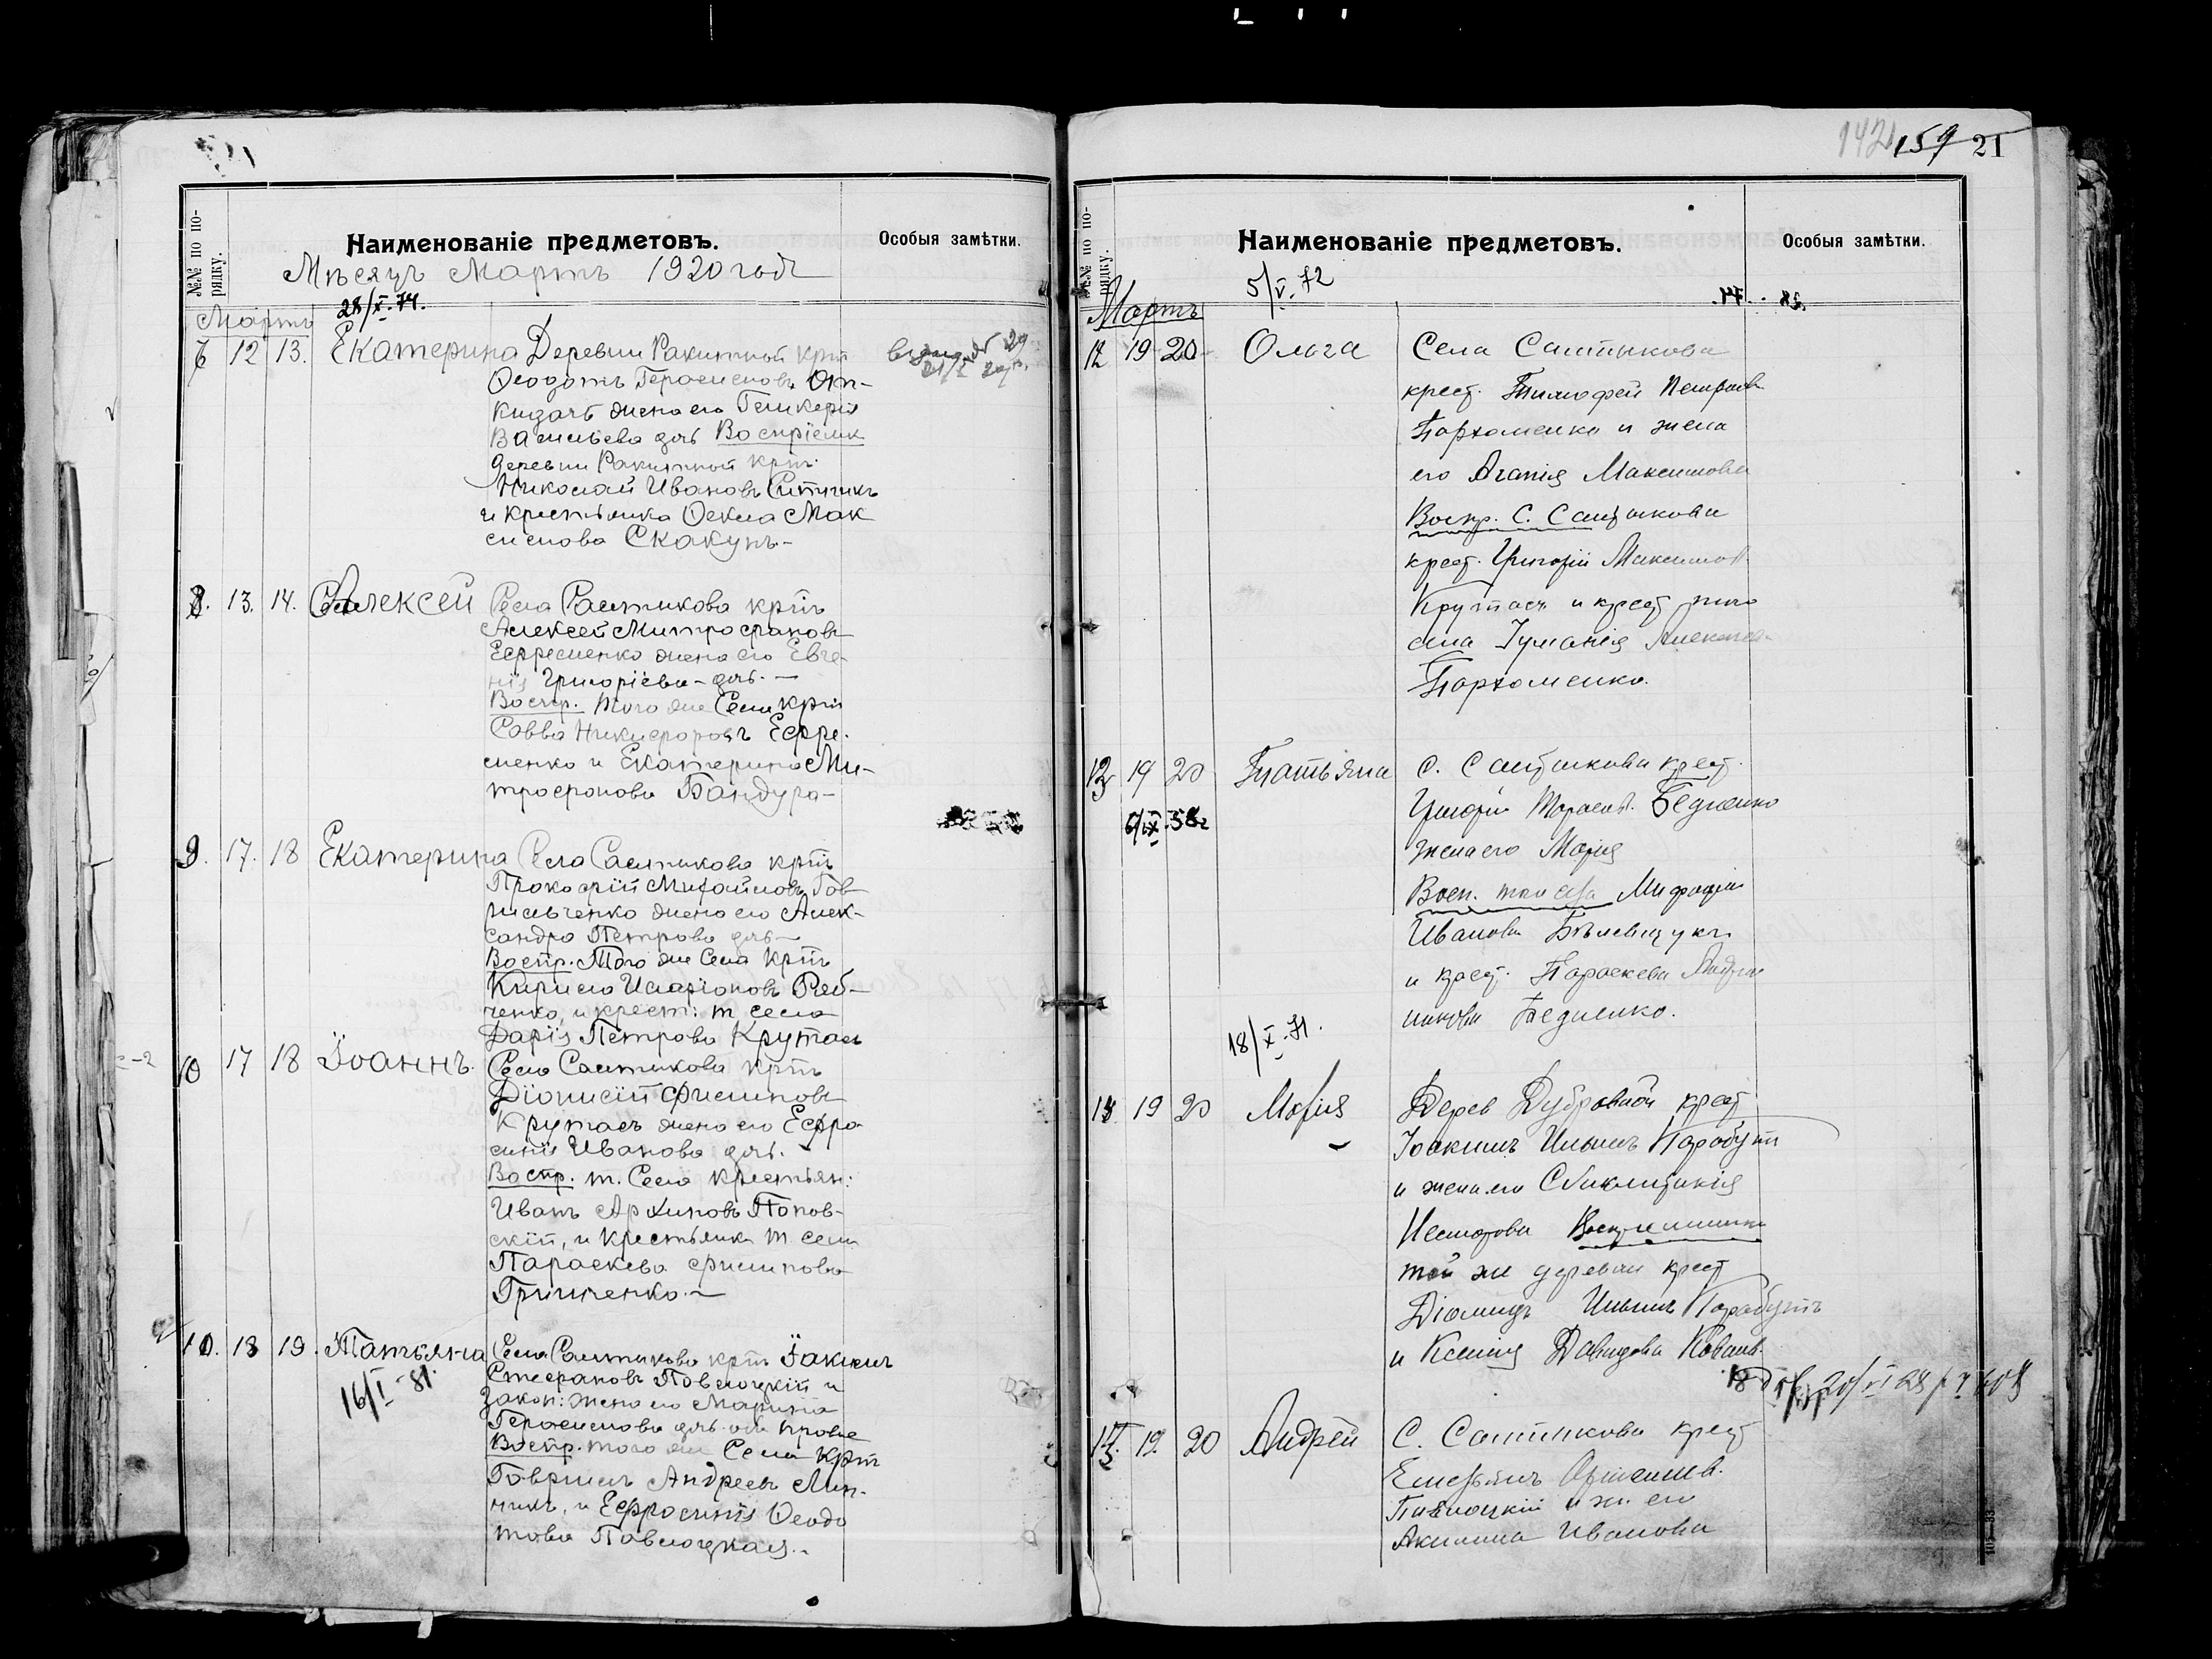 №№ по порядку.
Наименованіе предметовъ.
Особыя замѣтки.
Мѣсяцъ Мартъ 1920 годъ
28/X-74.
Мартъ
12 13. Екатерина Деревни Ракитной крт
Ѳеодотъ Герасимовъ От-
кидачъ жена его Гликерія
Васильева дочь Воспріемн
деревни Ракитной крт.
Николай Ивановъ
и крестьянка Ѳекла Мак
симова Скакунъ-
8. 13. 14. Алексей Села Салтикова крт
Алексей Митрофановъ
Ефременко жена его Евге-
нія Григоріева-дочь.-
Воспр. того же Села крт
Савва Никифоровъ Ефре-
менко и Екатерина Ми-
трофанова Бандура-
9. 17. 18 Екатерина Села Салтикова крт
Прокофій Михайловъ Гав-
рильченко жена его Алек-
сандра Петрова дочь-
Воспр. Того же Села крт
Кирило Иларіоновъ Ряб-
ченко, и крест: т села
Дарія Петрова Крутась
10 17 18 Іоаннъ. Села Салтикова крт
Діонисій Филиповъ
Крутась жена его Ефро
синія Иванова дочь.
Воспр. т. Села крестьян:
Иванъ Архиповъ Попов-
скій, и Крестьянка т. села
Параскева Филипова
Гринченко.-
18 19. Татьяна Села Салтикова крт Іакимъ
16/I-81. Стефановъ Павлоцкій и
закон: жена его Марина
Герасимова дочь оба правос
Воспр. того же Села крт
Гавриилъ Андреевъ Мин-
никъ, и Ефросинія Ѳеодо
това Павлоцкая.-
142 159 21
№№ по порядку.
Наименованіе предметовъ.
Особыя замѣтки.
5/V.72
Мартъ
12 19 20 Ольга Села Салтыкова
крест. Тимофей Петровъ
Пархоменко и жена
его Агапія Максимова
Воспр. С. Салтыкова
крест. Григорій Максимов
Крутась и крест того
села Алексѣев
Пархоменко.
13 19 20 Татьяна С. Салтыкова крест.
6/IX.58г Григорій Тарасов. Бедненко
жена его Марія
Восп. того села
Иванова
и крест. Параскева
Бедненко.
18/X-71.
14 19 20 Марія Дерев Дубровной крест
Іоакимъ Ильинъ Парабутъ
и жена его
Несторова Воспріемники
той же деревни крест
Діомидъ Ильинъ Парабутъ
и Ксенія Давидова Коваль
19. 20 Андрей С. Салтыкова крест
Емельянъ
Павлоцкій и ж. его
Акилина Иванова